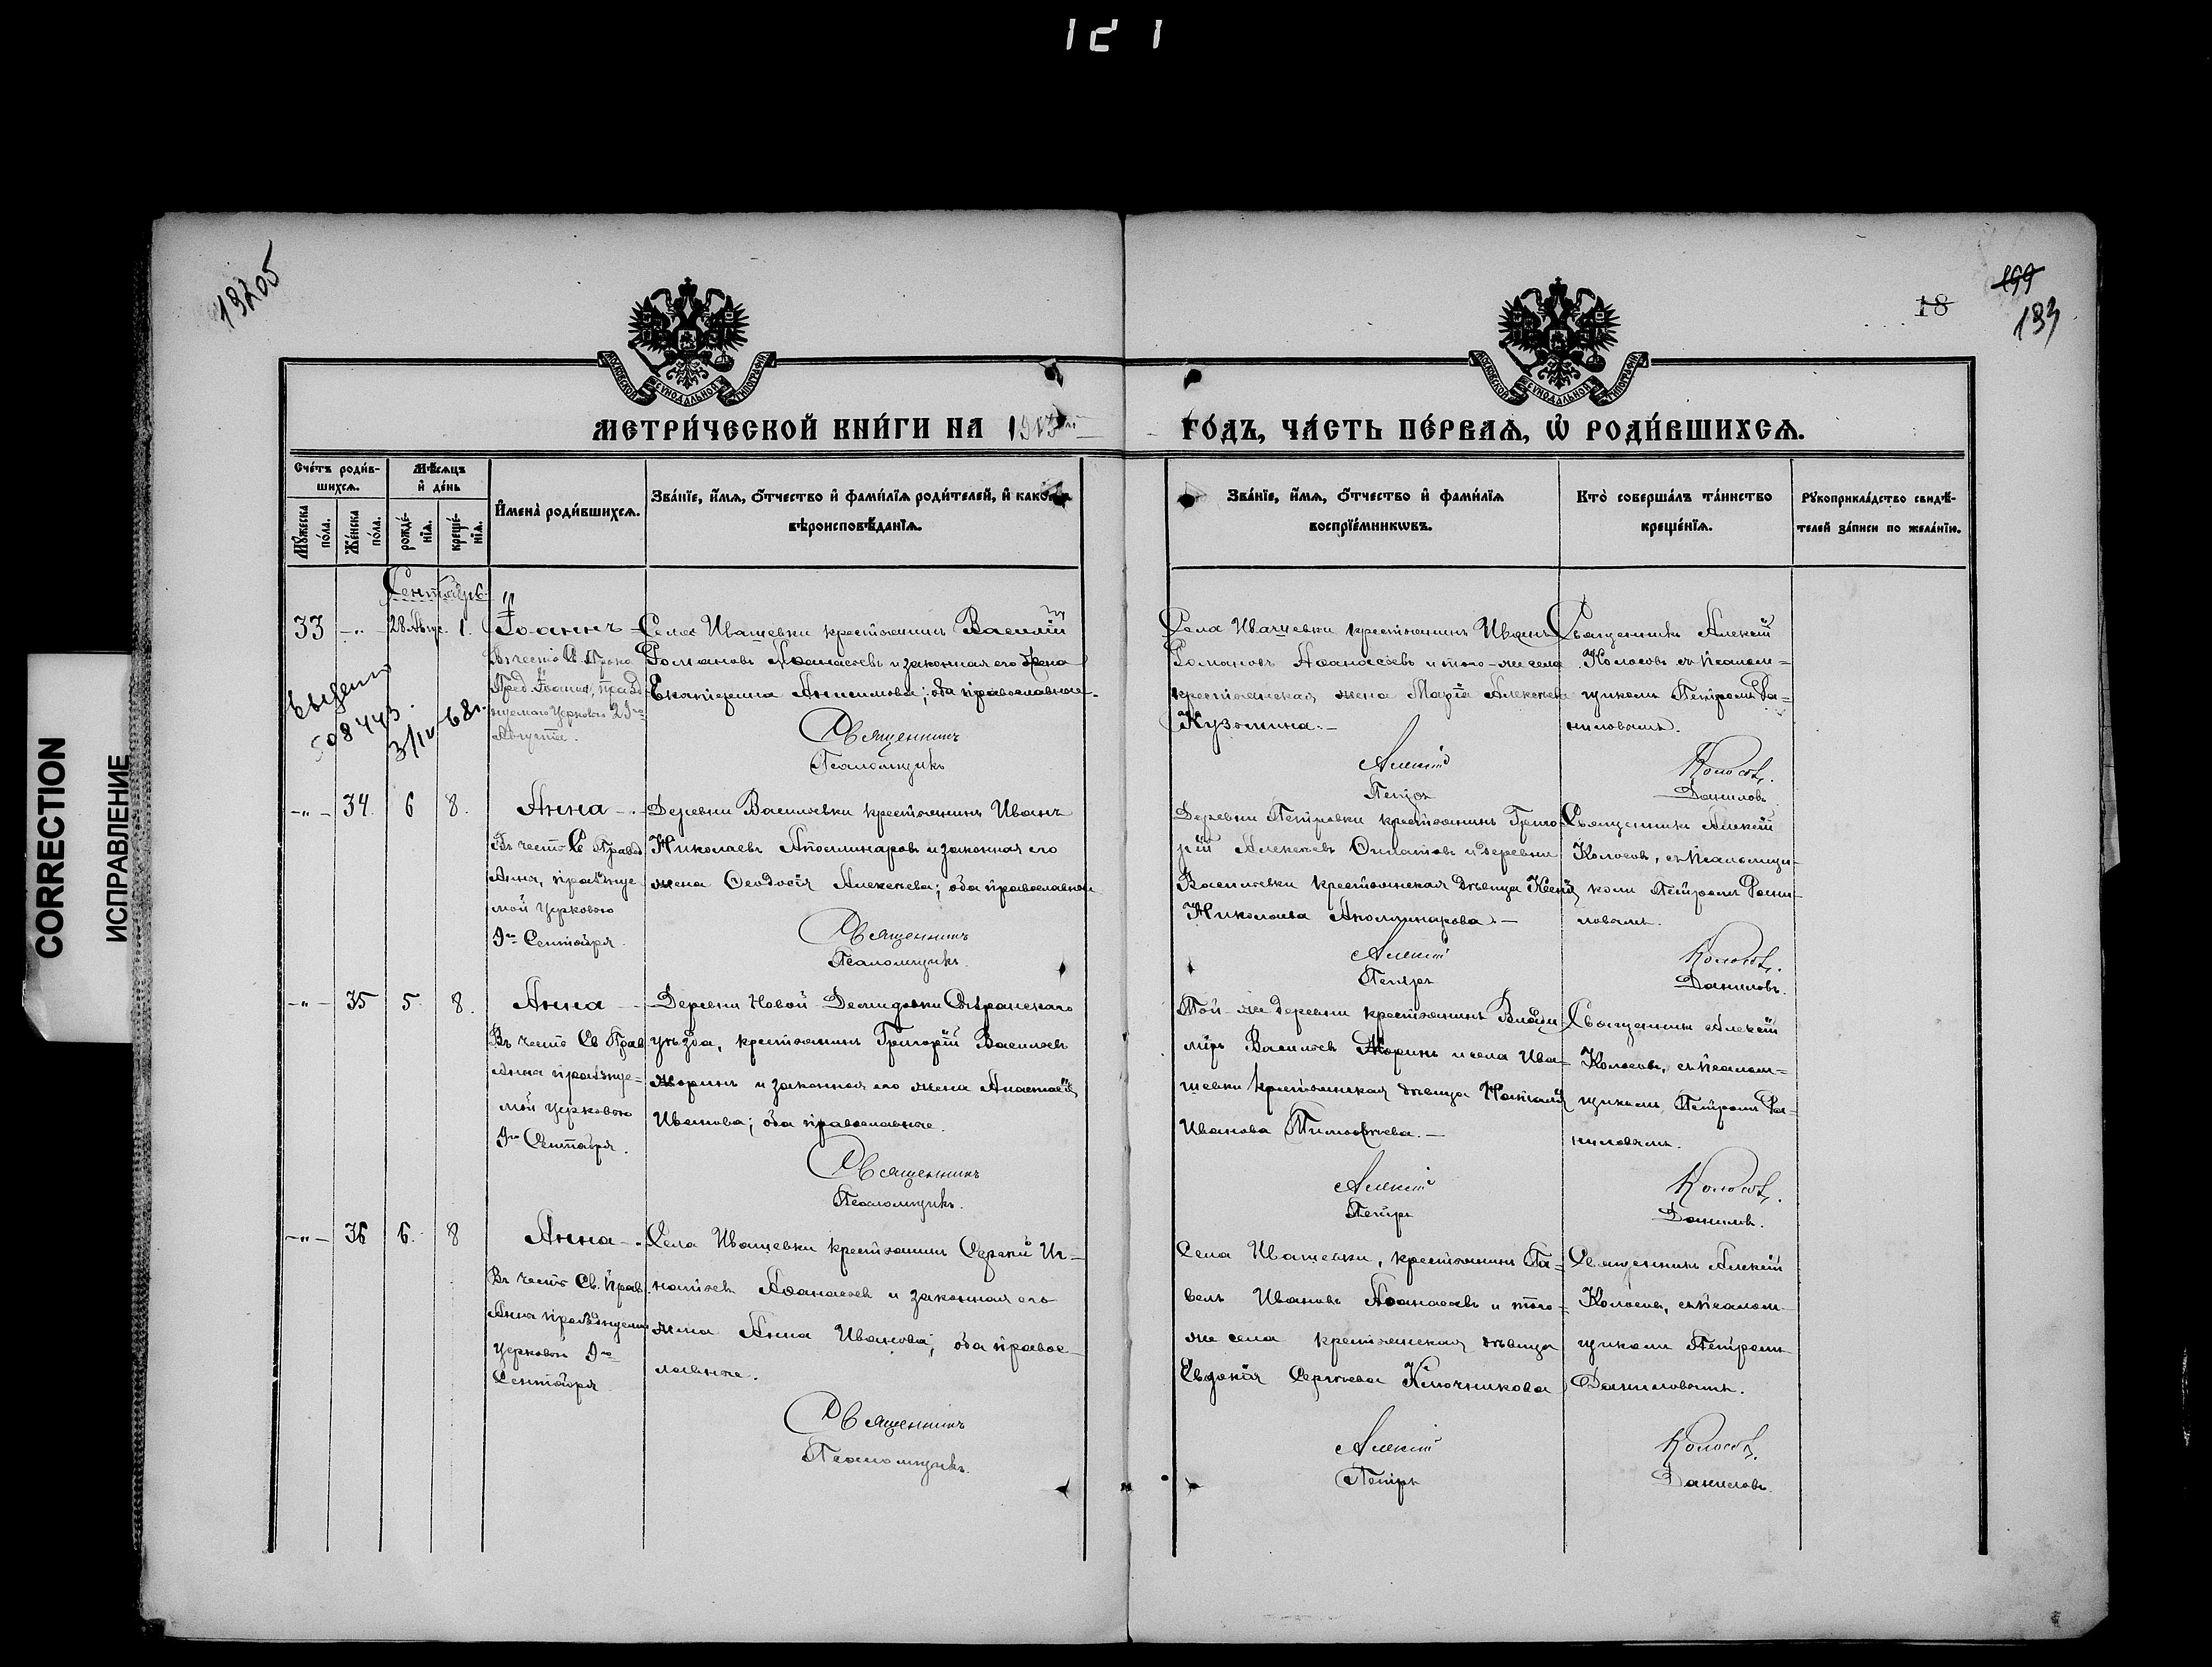 121
CORRECTION
ИСПРАВЛЕНИЕ
18
МЕТРИ́ЧЕСКОЙ КНИ́ГИ НА 1913
ГО́ДЪ, ЧА́СТЬ ПЕ́РВАѦ, Ѡ РОДИ́ВШИХСѦ.
Сче́тъ роди́в-
шихсѧ.
Мѣ́сѧцъ
и де́нь
Мꙋ́жеска по́ла.
Же́нска по́ла.
рожде́-
нїѧ.
креще́-
нїѧ.
Имена̀ роди́вшихсѧ.
Зва́нїе, и́мѧ, ѻ́тчество и фами́лїѧ роди́телей, и како́гѡ
вѣроисповѣ́данїѧ.
Зва́нїе, и́мѧ, ѻ́тчество и фами́лїѧ
воспрїе́мникѡвъ.
Кто̀ соверша́лъ та́инство
креще́нїѧ.
Рꙋкоприкла́дство свидѣ́-
телей за́писи по жела́нїю.
Сентябрь
33 -„- 28 Авгус. 1. Іоаннъ
Села Иващевки крестьянинъ Василій
Романовъ Аѳанасьевъ и законная его жена
Екатерина Анисимова; оба православные.
Священникъ
Псаломщикъ
Села Иващевки крестьянинъ Иванъ
Романовъ Аѳанасьевъ и того-же села
крестьянская жена Марія Алексеева
Кузьмина. —
Алексій
Петръ
Священникъ Алексій
Колосовъ съ псалом=
щикомъ Петромъ Да-
ниловымъ.
Колосовъ.
Даниловъ
-„- 34. 6 8. Анна
Въ честь Св Правед
Анны, празднуе
мой Церковью
9го Сентября.
Деревни Васильевки крестьянинъ Иванъ
Николаевъ Аполинаровъ и законная его
жена Ѳеодосія Алексеева; оба православные
Священникъ
Псаломщикъ.
Деревни Петровки крестьянинъ Григо-
рій Алексеевъ и деревни
Васильевки крестьянская дѣвица Ксенія
Николаева Аполинарова. —
Алексій
Петръ
Священникъ Алексій
Колосовъ, съ псаломщи-
комъ Петромъ Дани-
ловымъ.
Колосовъ.
Даниловъ.
-„- 35 5 8. Анна
Въ честь Св Прав
Анны празднуе=
мой церковью
9го Сентября.
Деревни Новой Демидовки Сызранскаго
уѣзда, крестьянинъ Григорій Васильевъ
и законная его жена Анастасія
Иванова; оба православные.
Священникъ
Псаломщикъ.
Той-же деревни крестьянинъ Влади-
міръ Васильевъ и села Ива-
щевки крестьянская дѣвица Наталія
Иванова Тимоѳеева. —
Алексій
Петръ
Священникъ Алексій
Колосовъ, съ псалом=
щикомъ Петромъ Да-
ниловымъ.
Колосовъ.
Даниловъ.
-„- 36 6. 8 Анна
Въ честь Св. Прав
Анны празднуемой
Церковью 9го
Сентября
Села Иващевки крестьянинъ Сергій Иг=
натьевъ Аѳанасьевъ и законная его
жена Анна Иванова; оба правос-
лавные.
Священникъ
Псаломщикъ.
Села Иващевки, крестьянинъ Па=
велъ Ивановъ Аѳанасьевъ и того-
же села крестьянская дѣвица
Евдокія Сергеева Ключникова
Алексій
Петръ
Священникъ Алексій
Колосовъ, съ псалом-
щикомъ Петромъ
Даниловымъ.
Колосовъ.
Даниловъ.